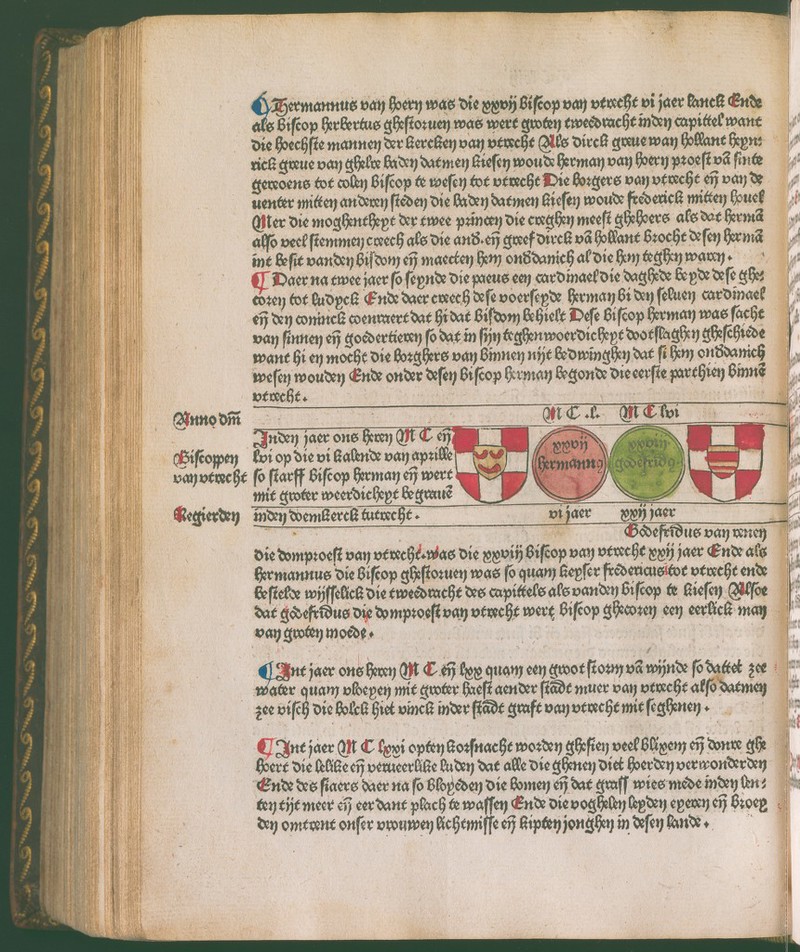 ¶ Hermannus van hoern was die xxvij biscop van vtrecht vi jaer lanck Ende
als biscop herbertus ghestoruen was wert groten tweedracht inden capittel want
die hoechste mannen der kercken van vtrecht Als dirck greue van hollant heyn⸗
rick greue van ghelre baden datmen kiesen woude herman van hoern proest vā sinte
gereoens tot colen biscop te wesen tot vtrecht Die borgers van vtrecht eñ van de
uenter mitten anderen steden die baden datmen kiesen woude frederick mitten houel
Mer die moghentheyt der twee princen die creghen meest ghehoers als dat hermā
also veel stemmen creech als die and. eñ greef dirck vā hollant brocht desen hermā
int besit vanden bisdom eñ maecten hem onddanich al die hem teghen waren.
¶ Daer na twee jaer so seynde die paeus een cardinael die daghede beyde dese ghe⸗
coren tot ludyck Ende daer creech dese voerseyde herman bi den seluen cardinael
eñ den coninck coenraert dat hi dat bisdom behielt Dese biscop herman was sacht
van sinnen eñ goedertieren so dat in sijn teghenwoerdicheyt dootslaghen gheschiede
want hi en mocht die borghers van binnen nijt bedwinghen dat si hem onddanich
wesen wouden Ende onder desen biscop herman begonde die eerste parthien binnē
vtrecht.
Anno dm̄
M C .l. M C lvi
Inden jaer ons heren M C eñ
lvi op die vi kalende van aprille
so starff biscop herman eñ wert
mit groter weerdicheyt begrauē
inden doemkerck tutrecht.
Biscoppen
van vtrecht
Regierden
xxvij
hermann9
xxviij
godefrid9
vi jaer xxij jaer
Godefridus van renen
die domproest van vtrecht. was die xxviij biscop van vtrecht xxij jaer Ende als
hermannus die biscop ghestoruen was so quam keyser fredericus tot vtrecht ende
bestelde wijsselick die tweedracht des capittels als vanden biscop te kiesen Alsoe
dat godefridus die domproest van vtrecht wert biscop ghecoren een eerlick man
van groten moede.
¶ Int jaer ons heren M C eñ lxx quam een groot storm vā wijnde so dattet zee
water quam vloeyen mit groter haest aender stadt muer van vtrecht also datmen
zee visch die bolck hiet vinck inder stadt graft van vtrecht mit seghenen.
¶ Int jaer M C lxxi opten korsnacht worden ghesien veel blixem eñ donre ghe
hoert die lelike eñ verueerlike luden dat alle die ghenen diet hoerden verwonderden
Ende des siaers daer na so bloyeden die bomen eñ dat graff wies mede inden len⸗
ten tijt meer eñ eer dant plach te wassen Ende die voghelen leyden eyeren eñ broey
den omtrent onser vrouwen lichtmisse eñ kipten jonghen in desen lande.